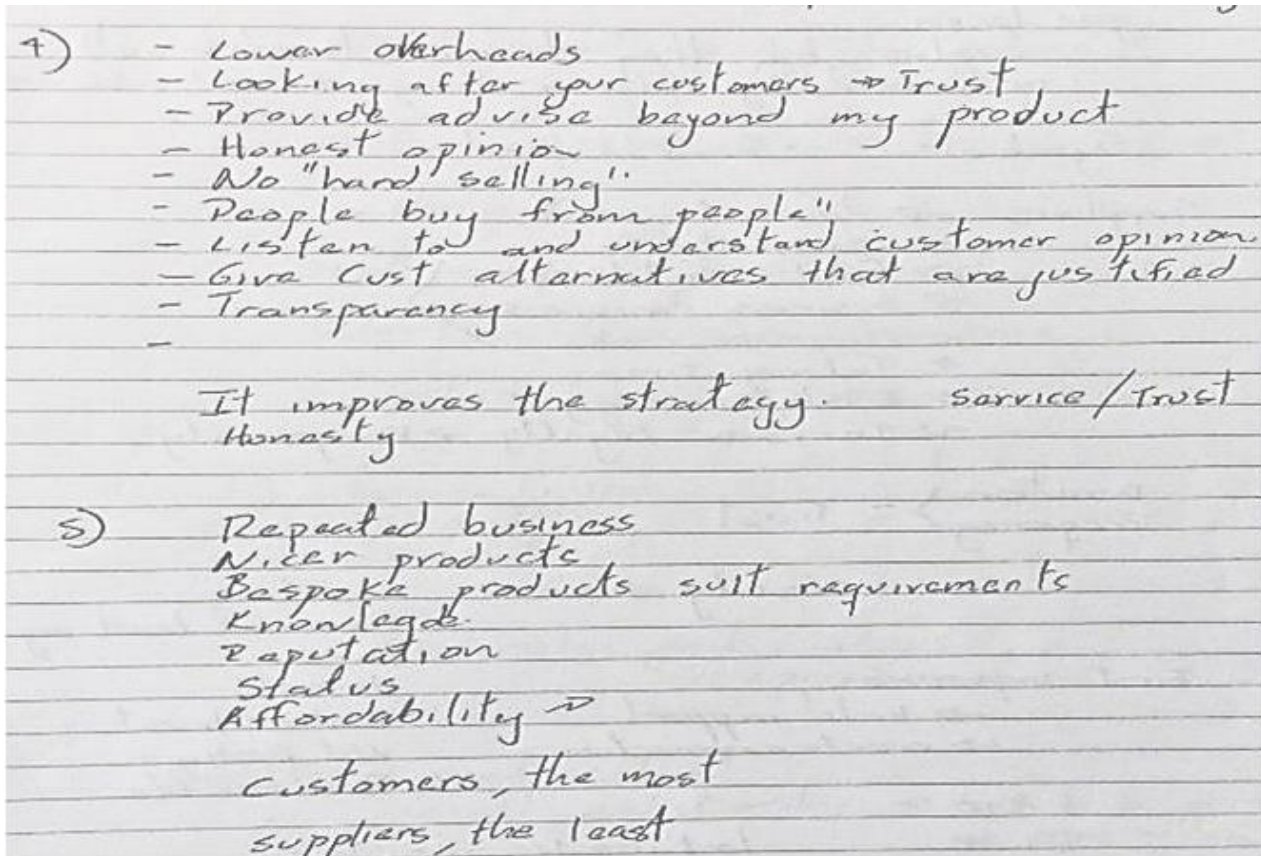 4) - Lower overheads
- Looking after your customers → Trust
- Provide advise beyond my product
- Honest opinion
- No "hard selling".
- People buy from people"
- Listen to and understand customer opinion
- Give Cust alternatives that are justified
- Transparency
-
It improves the strategy. Service/Trust
Honesty
5) Repeated business
Nicer products
Bespoke products suit requirements
Knowlegde.
Reputation
Status
Affordability →
Customers, the most
suppliers, the least